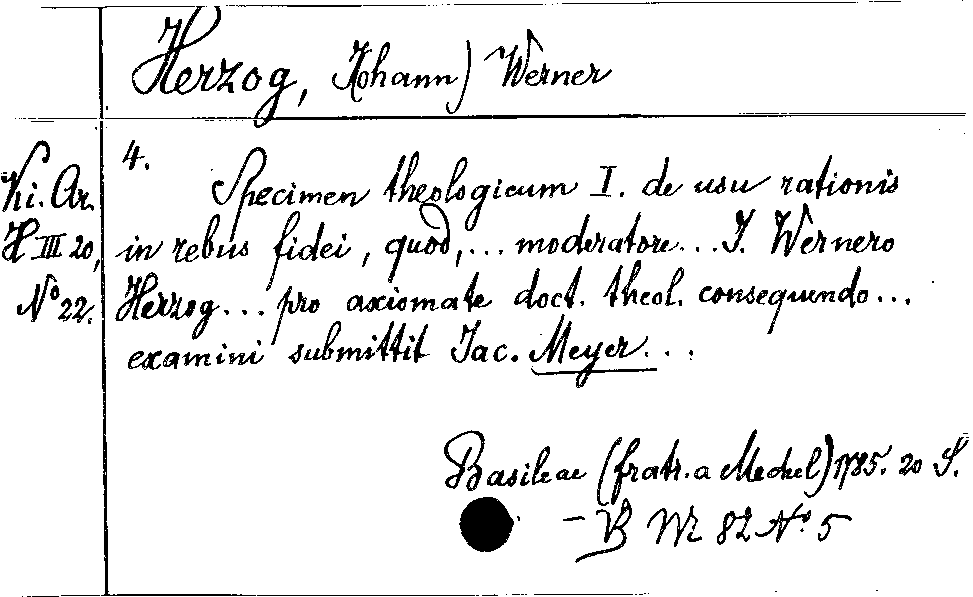 Herzog, Johann) Werner
Ki. Ar.
H III 20,
No 22.
4.
Specimen theologicum I. de usu rationis
in rebus fidei, quod,... moderatore... J. Wernero
Herzog... pro axiomate doct. theol. consequendo...
examini submittit Jac. Meyer...
Basileae (fratr. a Mechel) 1785. 20 S.
– B Wz 82 No 5